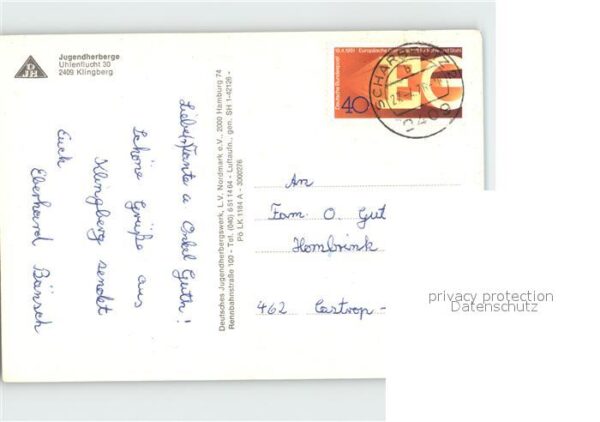 Jugendherberge
Uhlenflucht 30
2409 Klingberg
DJH
Liebe(r) Tante u Onkel Guth!
Schöne Grüße aus
Klingberg sendet
Euch
Eberhard Bänsch
Deutsches Jugendherbergswerk, L.V. Nordmark e.V., 2000 Hamburg 74
Rennbahnstraße 100 - Tel. (040) 6 51 14 64 - Luftaufn., gen. SH 1-42126 -
Pö LK 1184 A - 3000276
Deutsche Bundespost
40
SCHARBEUTZ
2409
An
Fam. O. Gut
Hombrink
462 Castrop -
privacy protection
Datenschutz